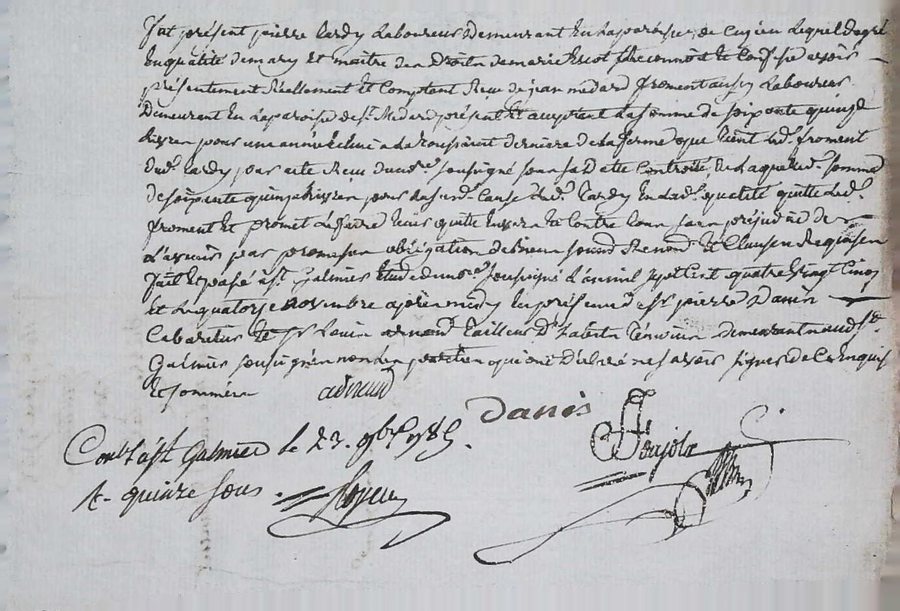 fut présent pierre tardy Laboureur Demeurant En La paroisse de Cuzieu Lequel de gré
En qualité de mary Et maitre des Droits de marie
présentement Réellement Et Comptant Reçu de jean medard froment aussy Laboureur
Demeurant En La paroisse de St. Medard présent Et acceptant La somme de soixante quinze
Livres pour une année Echue a La toussaint derniere de La ferme que tient Led. froment
dud. tardy, par acte Reçu du no.re soussigné sous sa Datte Controllé, De Laquelle somme
de soixante quinze Livres pour Led. tardy En Lad. qualité quitte Led.
froment Et promet Le faire tenir quitte Envers Et Contre tous sans préjudice de
par promesse obligation de biens soumis. Renon. Et Clauses Requises
fait Et passé a St. Galmier Etude du no.re soussigné L'an mil sept Cent quatre vingt Cinq
Et Le quatorze novembre après midy En présence de Sr. pierre Danis
Cabaretier Et Sr. arnaud tailleur D'habits témoins Demeurant aud. St.
Galmier soussignés non Les parties qui ont Déclaré ne savoir signer de Ce Enquis
Et sommés arnaud
Danis
Cont. a St. Galmier le 23. 9bre 1785.
R. quinze sous.